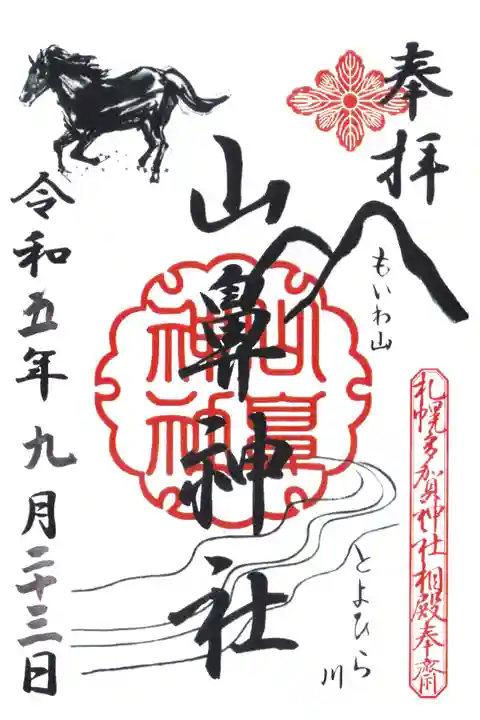 奉拝
もいわ山
札幌多賀神社相殿奉齋
山鼻神社
山鼻神社
とよひら川
令和五年九月二十三日